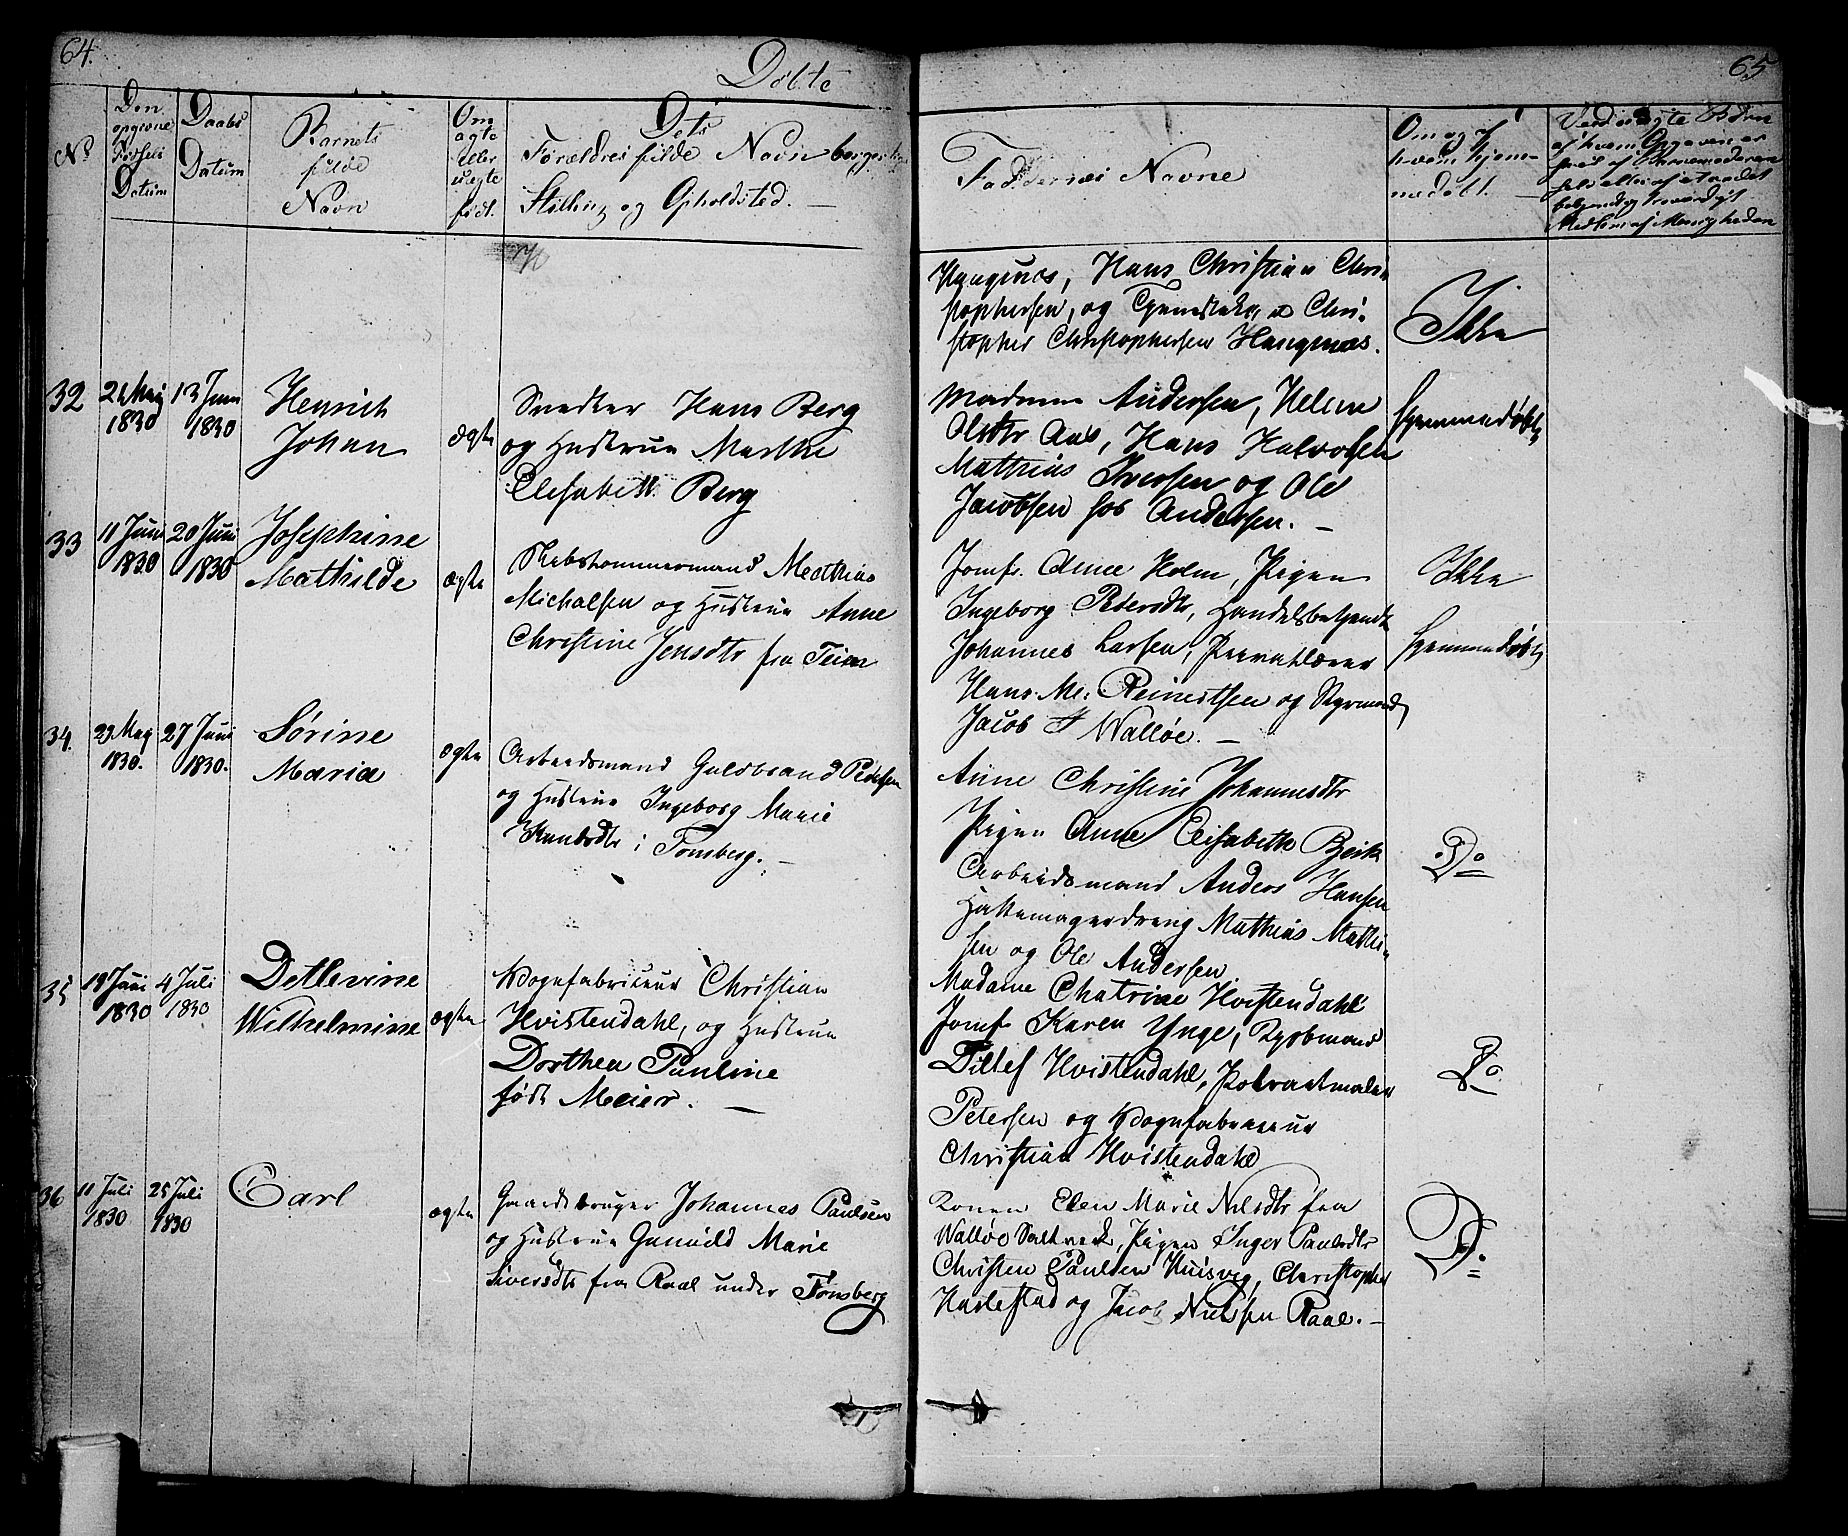 64.
Døbte
No
Den
opgivne
Fødsels
Datum
Daabs
Datum
Barnets
fulde
Navn
Om
ægte
eller
uægte
født.
Dets
Forældres fulde Navn borgerlige
Stilling og Opholdsted. —
32
21 Maj
1830
13 Juni
1830
Henrich
Johan
ægte
Snedker Hans Berg
og Hustrue Marthe
Elisabeth Berg
33
11 Juni
1830
20 Juni
1830
Josephine
Mathilde
ægte
Skibstømmermand Mathias
Michalsen og Hustrue Anne
Christine Jensdtr fra Teien
34.
29 May
1830.
27 Juni
1830.
Sørine
Maria
ægte
Arbeidsmand Guldbrand Pedersen
og Hustrue Ingeborg Marie
Knudsdtr i Tønsberg. —
35
19 Juni
1830
4 Juli
1830
Detlevine
Wilhelmine
ægte
Vognfabriceur Christian
Hvistendahl, og Hustrue
Dorthea Pauline
født Meier. —
36
11 Juli
1830
25 Juli
1830
Carl
ægte
Gaardsbruger Johannes Paulsen
og Hustrue Gunild Marie
Siversdtr fra Raal under Tønsberg
65
Faddernes Navne
Om og af
hvem hjem-
medøbt. —
af hvem Opgaven er
Medlem af Menigheden
Haugenæs, Hans Christian Chri-
stophersen, og Christopher
Christophersen Haugenæs.
Ikke
Madame Andersen, Helene
Olsdtr Aas, Hans Halvorsen
Mathias Iversen og Ole
Jacobsen hos Andersen. —
Hjemmedøbt
Jomfr. Anne Holm, Pigen
Ingeborg Pedersdtr, Handelsbetjendt
Johannes Larsen, Privatlærer
Hans M. Reinertsen og Styrmand
Jacob F Walløe. —
Ikke
Hjemmedøbt
Anne Christine Johannesdtr
Pigen Anne Elisabeth
Arbeidsmand Anders Hansen
Hattemagerdreng Mathias Mathi-
sen og Ole Andersen
Do
Madame Chatrine Hvistendahl
Jomfr Karen Ynge, Kjøbmand
Ditlef Hvistendahl, Potraitmaler
Petersen og Vognfabriceur
Christian Hvistendahl
Do
Konen Elen Marie Nilsdtr fra
Walløe Saltverk, Pigen Inger Paulsdtr
Christen Paulsen Huisveg, Christopher
Harlestad og Jacob Nielsen Raal. —
Do